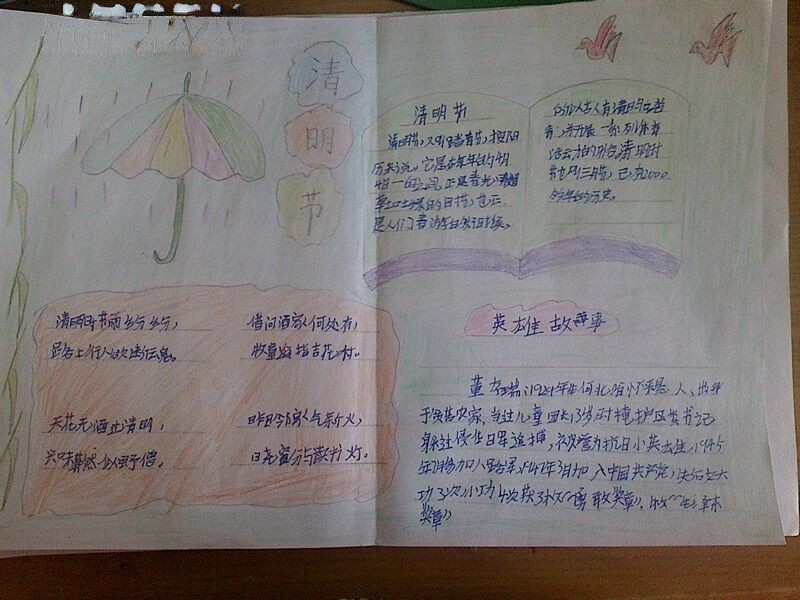 清
明
节
清明节
清明节,又叫踏青节,按阳
历来说,它是在每年的4月
4日—6日之间,正是春光明媚
草木吐绿的日子,也正
是人们春游
古人有清明踏青
开展一系列体育
的历史。
清明时节雨纷纷,
借问酒家何处有,
路上行人欲断魂。
牧童遥指杏花村。
无花无酒过清明,
昨日邻家乞新火,
兴味萧然似野僧。
日尧窗分与读书灯。
英雄故事
董存瑞,1929年生河北省怀来县人,出身
于贫苦农家,当过儿童团长,13岁时掩护区委书记
躲过侵华日军追捕,被誉为抗日小英雄,1945
年7月参加八路军,1947年3月加入中国共产党,先后立大
功3次,小功4次,获3枚“勇敢奖章”,
奖章”